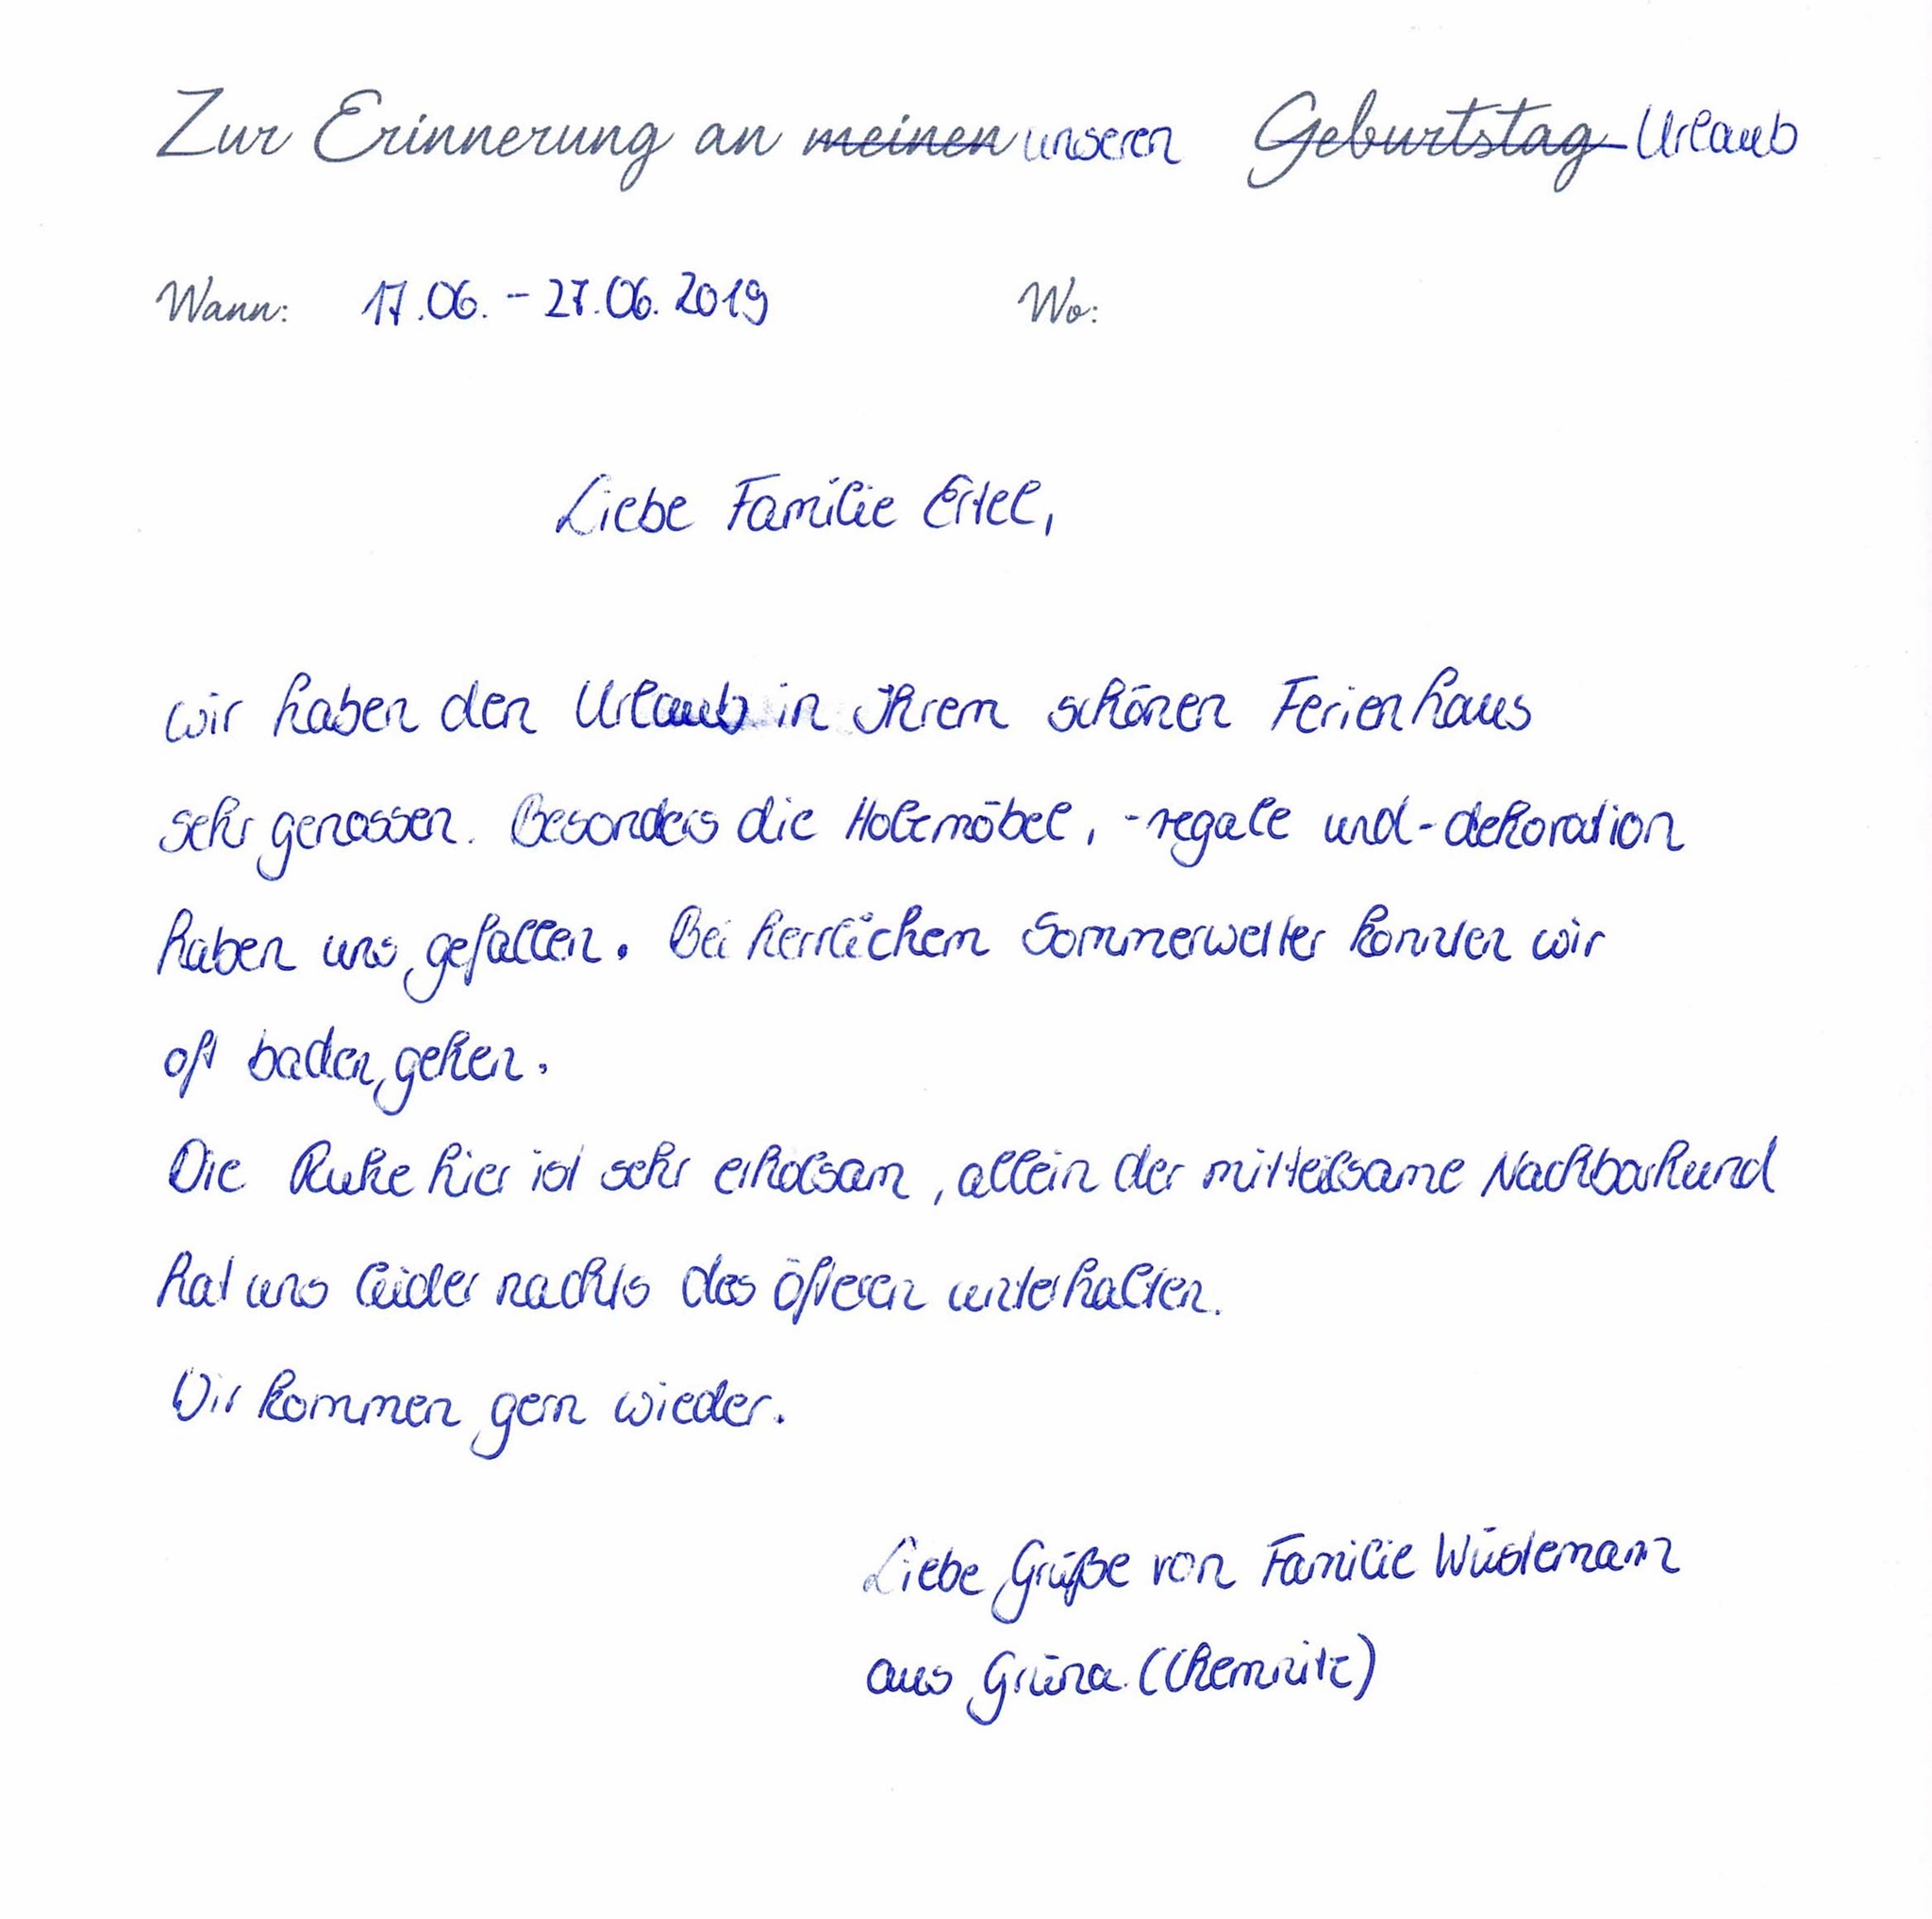 Zur Erinnerung an meinen unseren Geburtstag Urlaub
Wann: 17.06. - 27.06.2019 Wo:
Liebe Familie Ertel,
wir haben den Urlaub in Ihrem schönen Ferienhaus
sehr genossen. Besonders die Holzmöbel, -regale und -dekoration
haben uns gefallen. Bei herrlichem Sommerwetter konnten wir
oft baden gehen.
Die Ruhe hier ist sehr erholsam, allein der mitteilsame Nachbarhund
hat uns leider nachts des öfteren unterhalten.
Wir kommen gern wieder.
Liebe Grüße von Familie Wüstemann
aus Grüna (Chemnitz)